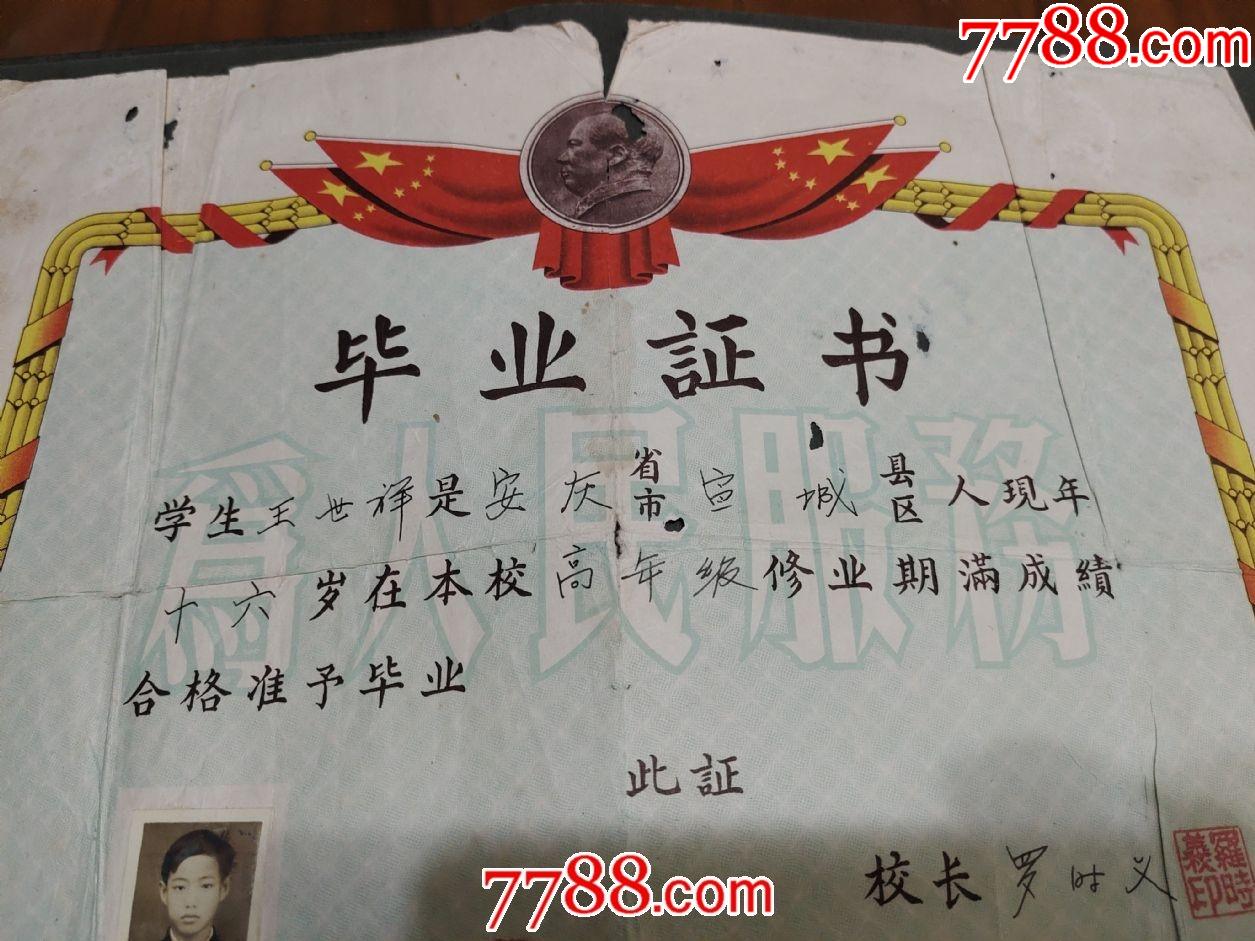 7788.com
毕业証书
为人民服務
学生王世祥是安庆省市宣城县区人現年
十六岁在本校高年级修业期滿成績
合格准予毕业
此証
校长罗时义
羅時義印
7788.com